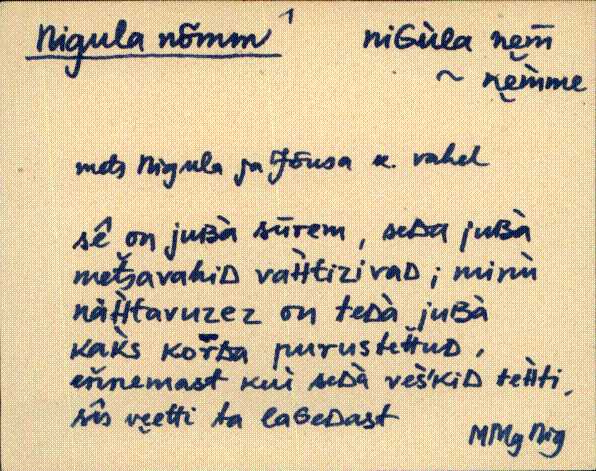 Nigula nõmm 1 niGùla ne̮m̄
~ ne̮m̀me
mets Nigula ja Jõusa k. vahel
sê on juʙà sūrem, seᴅa juʙà
metsavahiᴅ vaHtizivaᴅ; minù
näHtavuzez on teᴅà juʙà
kaks korᴅa purustettuᴅ,
ennemast kui seᴅà veškiᴅ teHti,
sîs ve̮etti ta laGeᴅast
MMg Nig